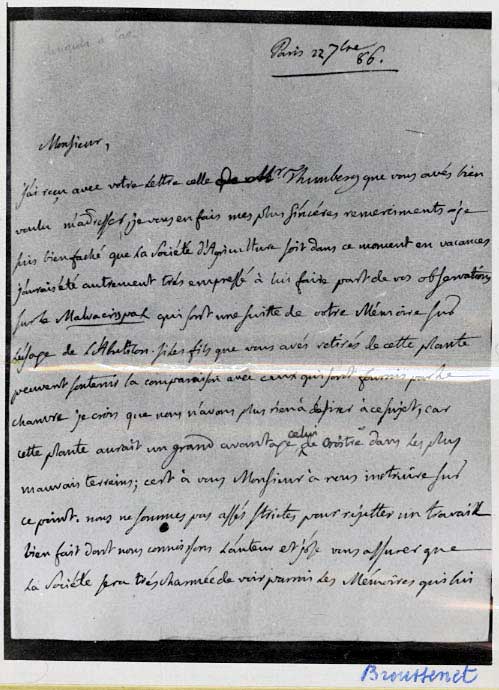 Paris 22 7bre
86.
Monsieur,
j'ai reçu avec votre Lettre celle de Mr. Thunberg que vous avés bien
voulu m'adresser, je vous en fais mes plus sincères remerciments et je
suis bien faché que la Société d'Agriculture soit dans ce moment en vacances
j'aurais été autrement très empressé à lui faire part de vos observations
sur le qui sont une suite de votre Mémoire sur
L'usage de L'Abutilon. si les fils que vous avés retirés de cette plante
peuvent soutenir la comparaison avec ceux qui sont fournis par le
chanvre je crois que nous n'avons plus rien à desirer à ce sujet, car
cette plante aurait un grand avantage celui de croître dans les plus
mauvais terrains; c'est à vous Monsieur à nous instruire sur
ce point. nous ne sommes pas assés strictes pour rejetter un travail
bien fait dont nous connoissons L'auteur et j'ose vous assurer que
La Société sera très charmée de voir parmis Les Mémoires qui lui
Broussenet